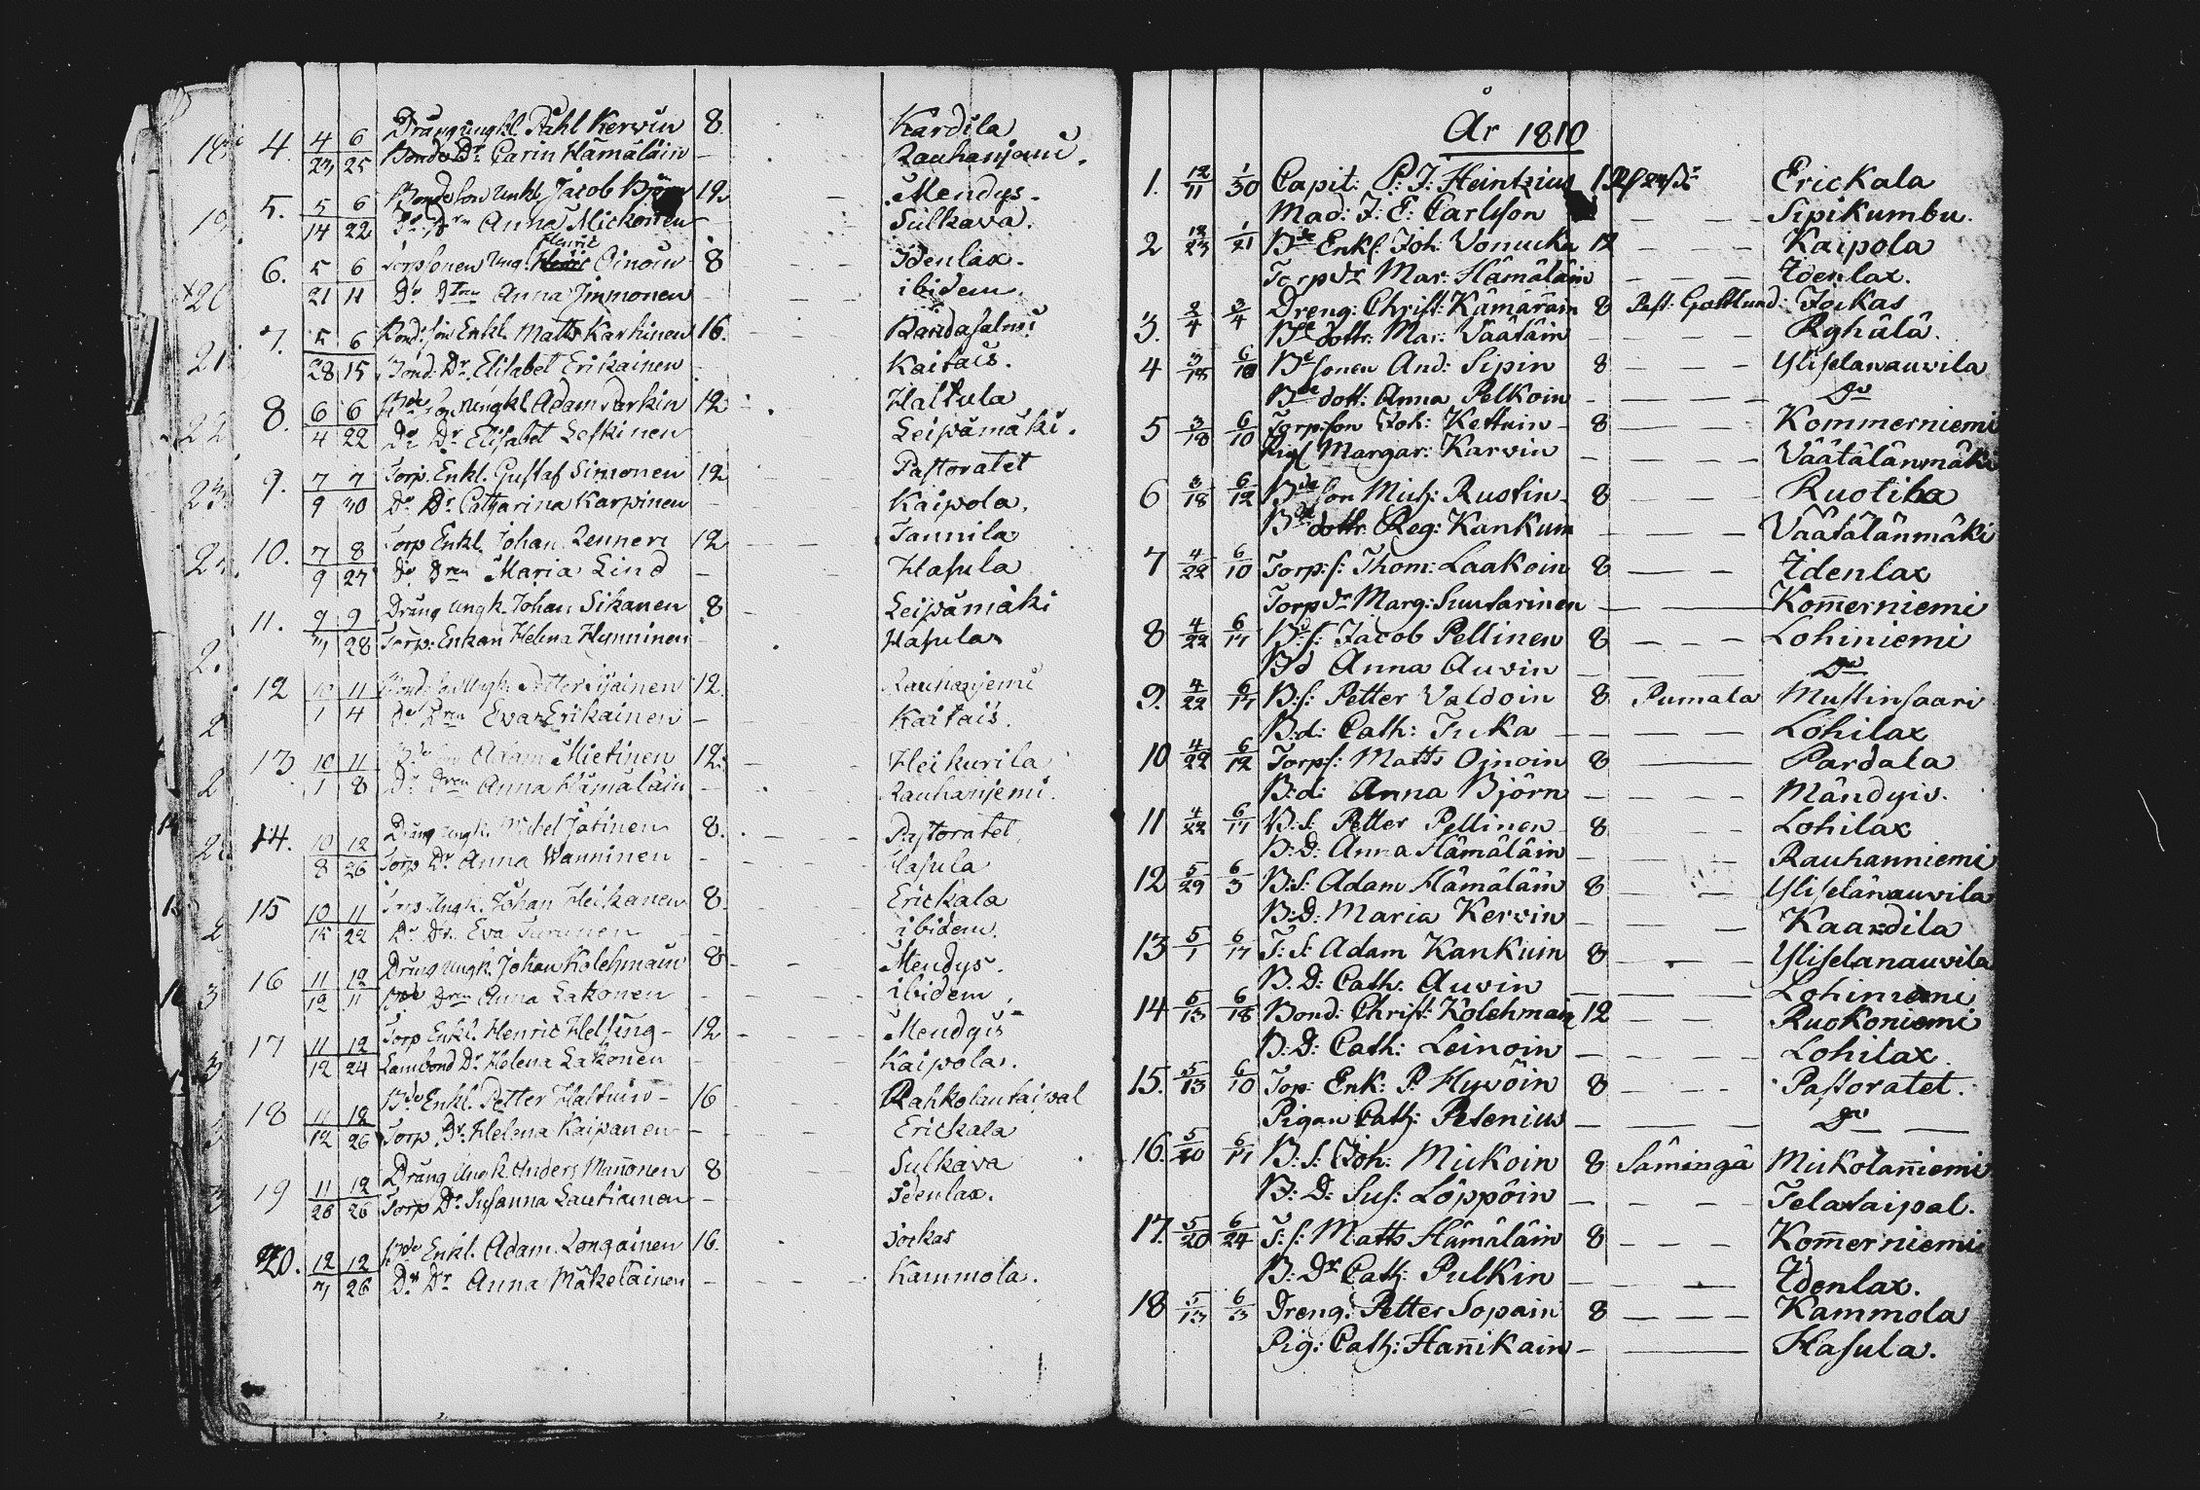 4. 4 6 Dräng ungkl. Påhl Kerwin 8. Kardila
23 25 Bonde Dr. Carin Hämäläin - Rauhanjemi.
5. 5 6 Bondeson Unkl. Jacob Björn 12. Mendys.
14 22 Do Drn Anna Mickonen - Sulkava.
6. 5 6 Torpsonen Ung. Henric Oinoin 8 Idenlax.
21 11 Do Dtrn Anna Immonen - ibidem.
7. 5 6 Bond: son Enkl. Matts Karhinen 16. Randasalmi
28 15 Bond. Dr. Elisabet Erikainen - Kaitais.
8. 6 6 Bde son ungkl Adam Parkin 12 Haltula
4 22 Do Dr Elisabet Leskinen Leipämäki.
9. 7 7 Torp. Enkl. Gustaf Simonen 12 Pastoratet
9 30 Do Dr Catharina Karpinen - Kaipola.
10. 7 8 Torp Enkl. Johan Renneri 12 Tannila
9 27 Do Dren Maria Lind - Hasula
11. 9 9 Dräng Ungk. Johan Sikanen 8 Leipämäki
28 Torp: Enkan Helena Hynninen - Hasula
12 10 11 Petter 12. Rauhanjemi
1 4 Do Dren Eva Erikainen - Kaitais.
13 10 11 Adam Mietinen 12. Heikurila
1 8 Do Dren Anna Hämäläin - Rauhanjemi.
14. 10 12 Dräng ungk. Michel Jätinen 8. Pastoratet
8 26 Torp Dr Anna Wanninen - Hasula
15 10 11 Torp Ungk. Johan Heikanen 8. Erickala
15 22 Do Dr. Eva Turunen - ibidem.
16 11 12 Dräng Ungk. Johan Kolehmain 8 Mendys.
12 11 Bde Drn Anna Lakonen - ibidem.
17 11 12 Torp Enkl. Henric Helsing - 12 Mendyis
12 24 Lambond Dr. Helena Lakonen - Kaipola.
18 11 12 Bde Enkl. Petter Haltuin - 16 Rahkolantaipal
12 26 Torp. Dr. Helena Kaipanen - Erickala
19 11 12 Dräng Ungk. Anders Mañonen 8 Sulkava
26 26 Torp Dr Susanna Lautiainen - Idenlax.
20. 12 12 Bde Enkl. Adam Longainen 16. Jockas
26 Do Dr Anna Mäkeläinen - Kammola.
År 1810
1. 12/11 1/30 Capit: P: J: Heintzius Erickala
Mad: J: E: Carlsson - - Sipikumbu.
2 12/23 1/21 Bde Enkl. Joh: Vonucka 12 - - - Kaipola
Torp dr Mar: Hämäläin - - - Idenlax.
3. 2/4 3/4 Dreng: Christ: Kämäräin 8 Past: Gottlund: Jockas
Bde dottr: Mar: Väätäin - - - - Ryhälä.
4 3/18 6/10 Bdsonen And: Sipin 8 - - - Yliselanauvila
Bde dott: Anna Pelkoin - - - - Do
5 3/18 6/10 Torp: son Joh: Kettuin - 8 - - - Kommerniemi
Pig: Margar: Karvin - - - - Väätälänmäki
6 3/18 6/12 Bde son Mich: Rustin - 8 - - - Ruotila
Bde dottr Reg: Kankum - - - - Väätälänmäki
7 4/22 6/10 Torp: s: Thom: Laakoin 8 - - - Idenlax
Torp dr Marg: Suutarinen - - Kom̄erniemi
8 4/22 6/17 Bd: s: Jacob Pellinen 8 - - - Lohiniemi
Bd Anna Auvin - - - - Do
9. 4/22 6/17 B: s: Petter Valdoin 8 Pumala Mustinsaari
B: d: Cath: Tuka - - - - Lohilax
10 4/22 6/12 Torp: s: Matts Ojnoin 8 - Pardala
B: d: Anna Björn - - - - Mändyis.
11 4/22 6/17 B: s: Petter Pellinen 8 - - Lohilax
B: D: Anna Hämäläin - - - - Rauhanniemi
12 5/29 6/3 B: s: Adam Hämäläin 8 - - - Yliselänauvila
B: D: Maria Kervin - - - - Kaardila
13 5/1 6/17 T: s: Adam Kankuin 8 - - - Yliselanauvila
B. D: Cath: Auvin - - - - Lohiniemi
14 5/13 6/18 Bond: Christ: Kolehmain 12 - - Ruokoniemi
B: D: Cath: Leinoin - - - - Lohilax
15. 5/13 6/10 Torp: Enk: P. Hyvöin 8 - - - Pastoratet.
Pigan Cath: Petenius - - - - Do -
16. 5/20 6/17 B: s: Joh: Mickoin 8 Sämingä Mikolañiemi
B: D: Sus: Löppöin - - - - Telataipal.
17. 5/20 6/24 T: s: Matts Hämäläin 8 - - - Kom̄erniemi
B: Dr Cath: Pulkin - - - Idenlax.
18 5/13 6/3 Dreng: Petter Sopain 8 - - - Kammola
Pig: Cath: Hañikain - - Hasula.